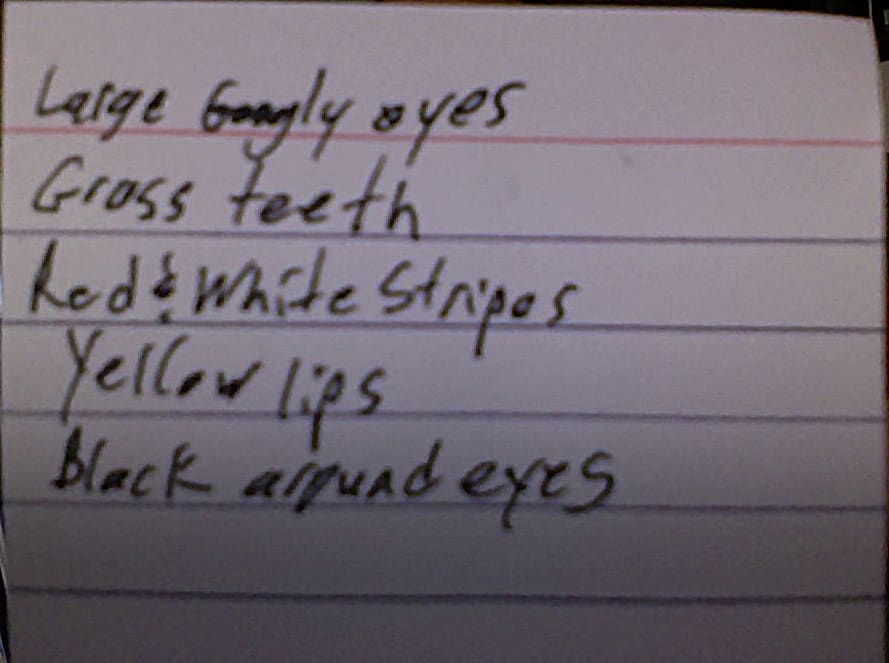 Large Googly eyes
Gross teeth
Red & White Stripes
Yellow lips
Black around eyes